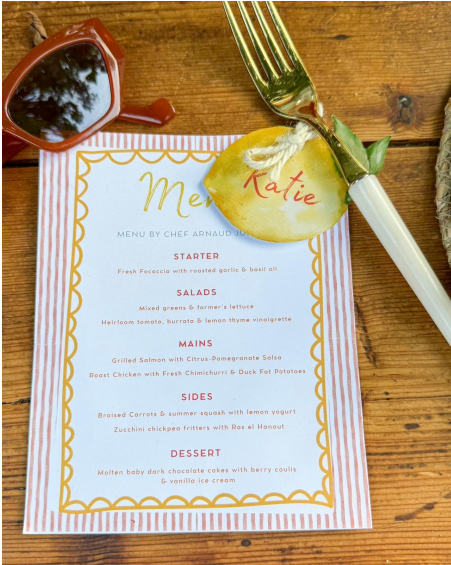 Katie
MENU BY CHEF ARNAUD
STARTER
Fresh Focaccia with roasted garlic & basil oil
SALADS
Mixed greens & farmer's lettuce
Heirloom tomato, burrata & lemon thyme vinaigrette
MAINS
Grilled Salmon with Citrus-Pomegranate Salsa
Roast Chicken with Fresh Chimichurri & Duck Fat Potatoes
SIDES
Braised Carrots & summer squash with lemon yogurt
Zucchini chickpea fritters with Ras el Hanout
DESSERT
Molten baby dark chocolate cakes with berry coulis
& vanilla ice cream